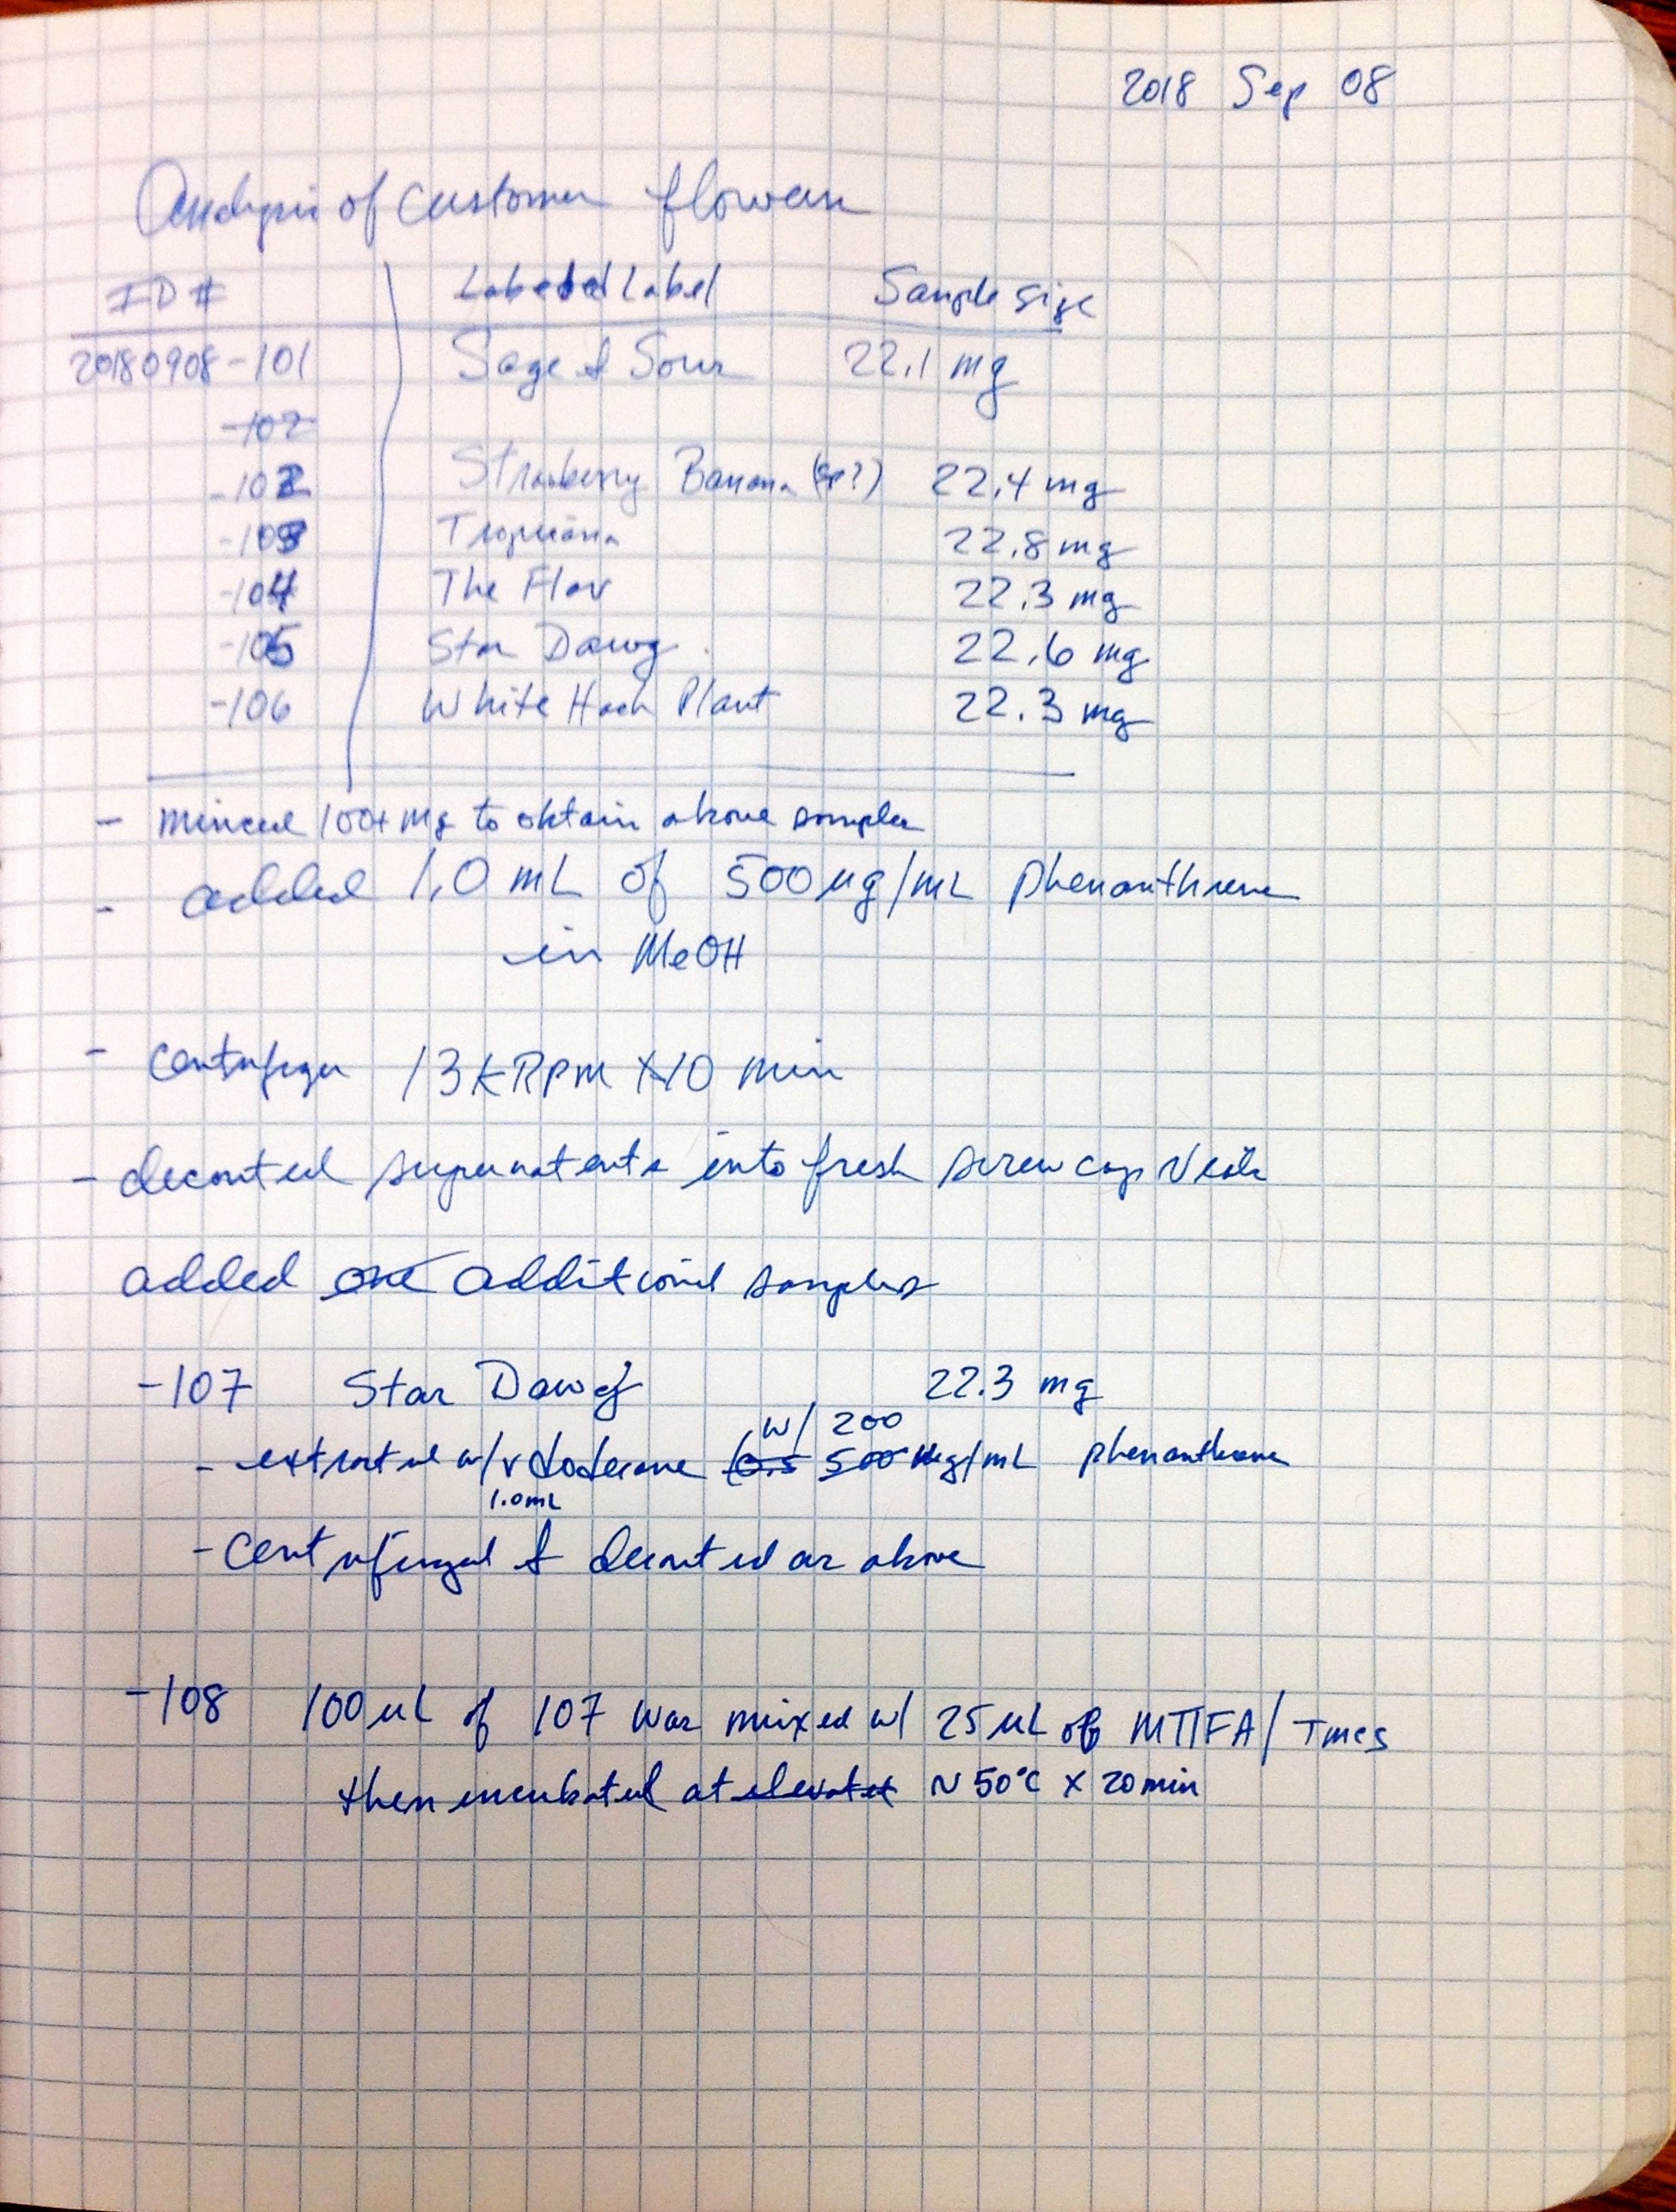 2018 Sep 08
Analysis of customer flowers
ID # Labeled Label Sample size
20180908-101 Sage & Sour 22.1 mg
-102
-102 Strawberry Banana (sp?) 22.4 mg
-103 22.8 mg
-104 The Flav 22.3 mg
-105 Star Dawg 22.6 mg
-106 White Hash Plant 22.3 mg
- minced 100+ mg to obtain above samples
- added 1.0 mL of 500 µg/mL phenanthrene
in MeOH
- centrifuge 13kRPM x10 min
- decanted supernatents into fresh screw cap vials
added one additional samples
-107 Star Dawg 22.3 mg
w/ 200
- extracted w/ dodecane (0.5 500 µg/mL phenanthrene
1.0mL
- centrifuged & decanted as above
-108 100 µL of 107 was mixed w/ 25 µL of /TMCS
then incubated at elevated ~ 50°C x 20 min